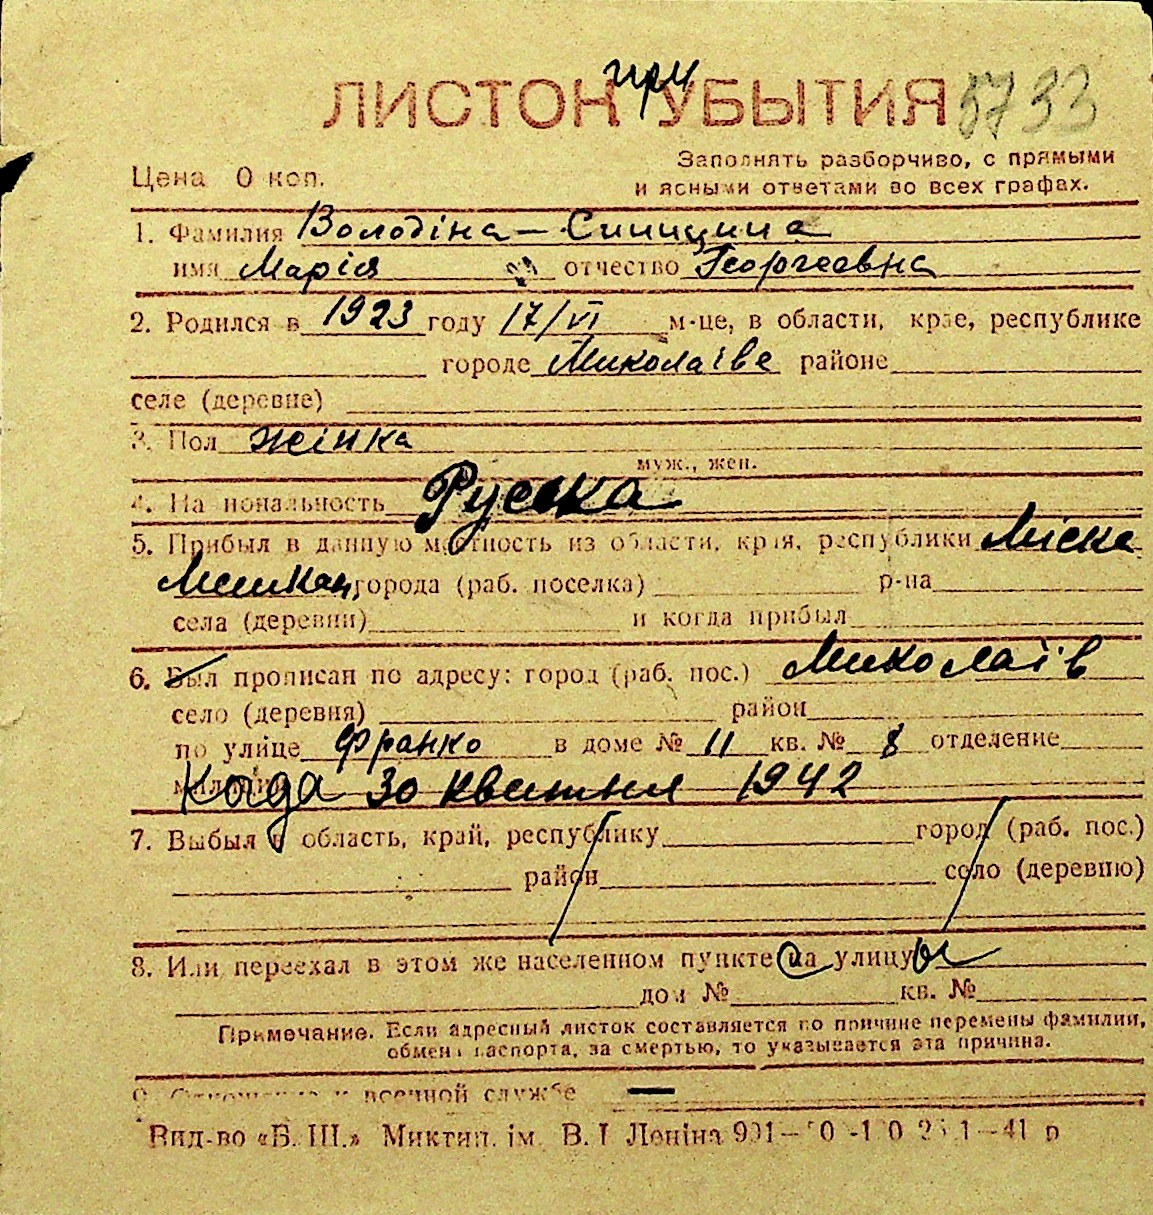 при
ЛИСТОК УБЫТИЯ 5733
Цена 0 коп.
Заполнять разборчиво, с прямыми
и ясными ответами во всех графах.
1. Фамилия Володіна-Синицина
имя Марія отчество Георгеевна
2. Родился в 1923 году 17/VI м-це, в области, крае, республике
городе Миколаіве районе
селе (деревне)
3. Пол жінка
муж., жен.
4. Национальность Русска
5. Прибыл в данную местность из области, края, республики Міска
Мешкан, города (раб. поселка) р-на
села (деревни) и когда прибыл
6. Был прописан по адресу: город (раб. пос.) Миколаїв
село (деревня) район
по улице Франко в доме № 11 кв. № 8 отделение
милиции Когда 30 квитня 1942
7. Выбыл в область, край, республику город (раб. пос.)
район село (деревню)
8. Или переехал в этом же населенном пункте на улицу ы
дом № кв. №
Примечание. Если адресный листок составляется по причине перемены фамилии,
обмена паспорта, за смертью, то указывается эта причина.
9. Отношение к военной службе —
Вид-во «Б. Ш.» Миктип. ім. В. І Леніна 991— 41 р